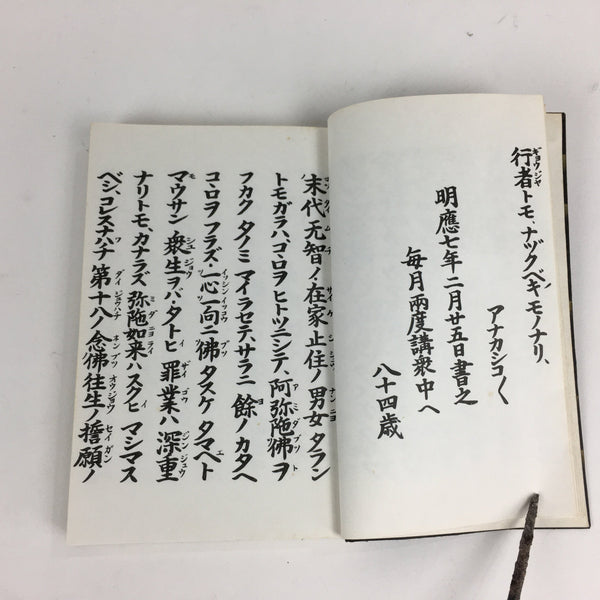 行者トモ、ナヅクベキモノナリ、
アナカシコ〱
明應七年二月廿五日書之
毎月兩度講衆中へ
八十四歳
末代无智ノ、在家止住ノ男女タラン
トモガラハ、コヽロヲヒトツニシテ、阿弥陀佛ヲ
フカクタノミマイラセテ、サラニ餘ノカタヘ
コヽロヲフラズ、一心一向ニ佛タスケタマヘト
マウサン衆生ヲバ、タトヒ罪業ハ深重
ナリトモ、カナラズ弥陀如来ハスクヒマシマス
ベシ、コレスナハチ第十八ノ念佛往生ノ誓願ノ